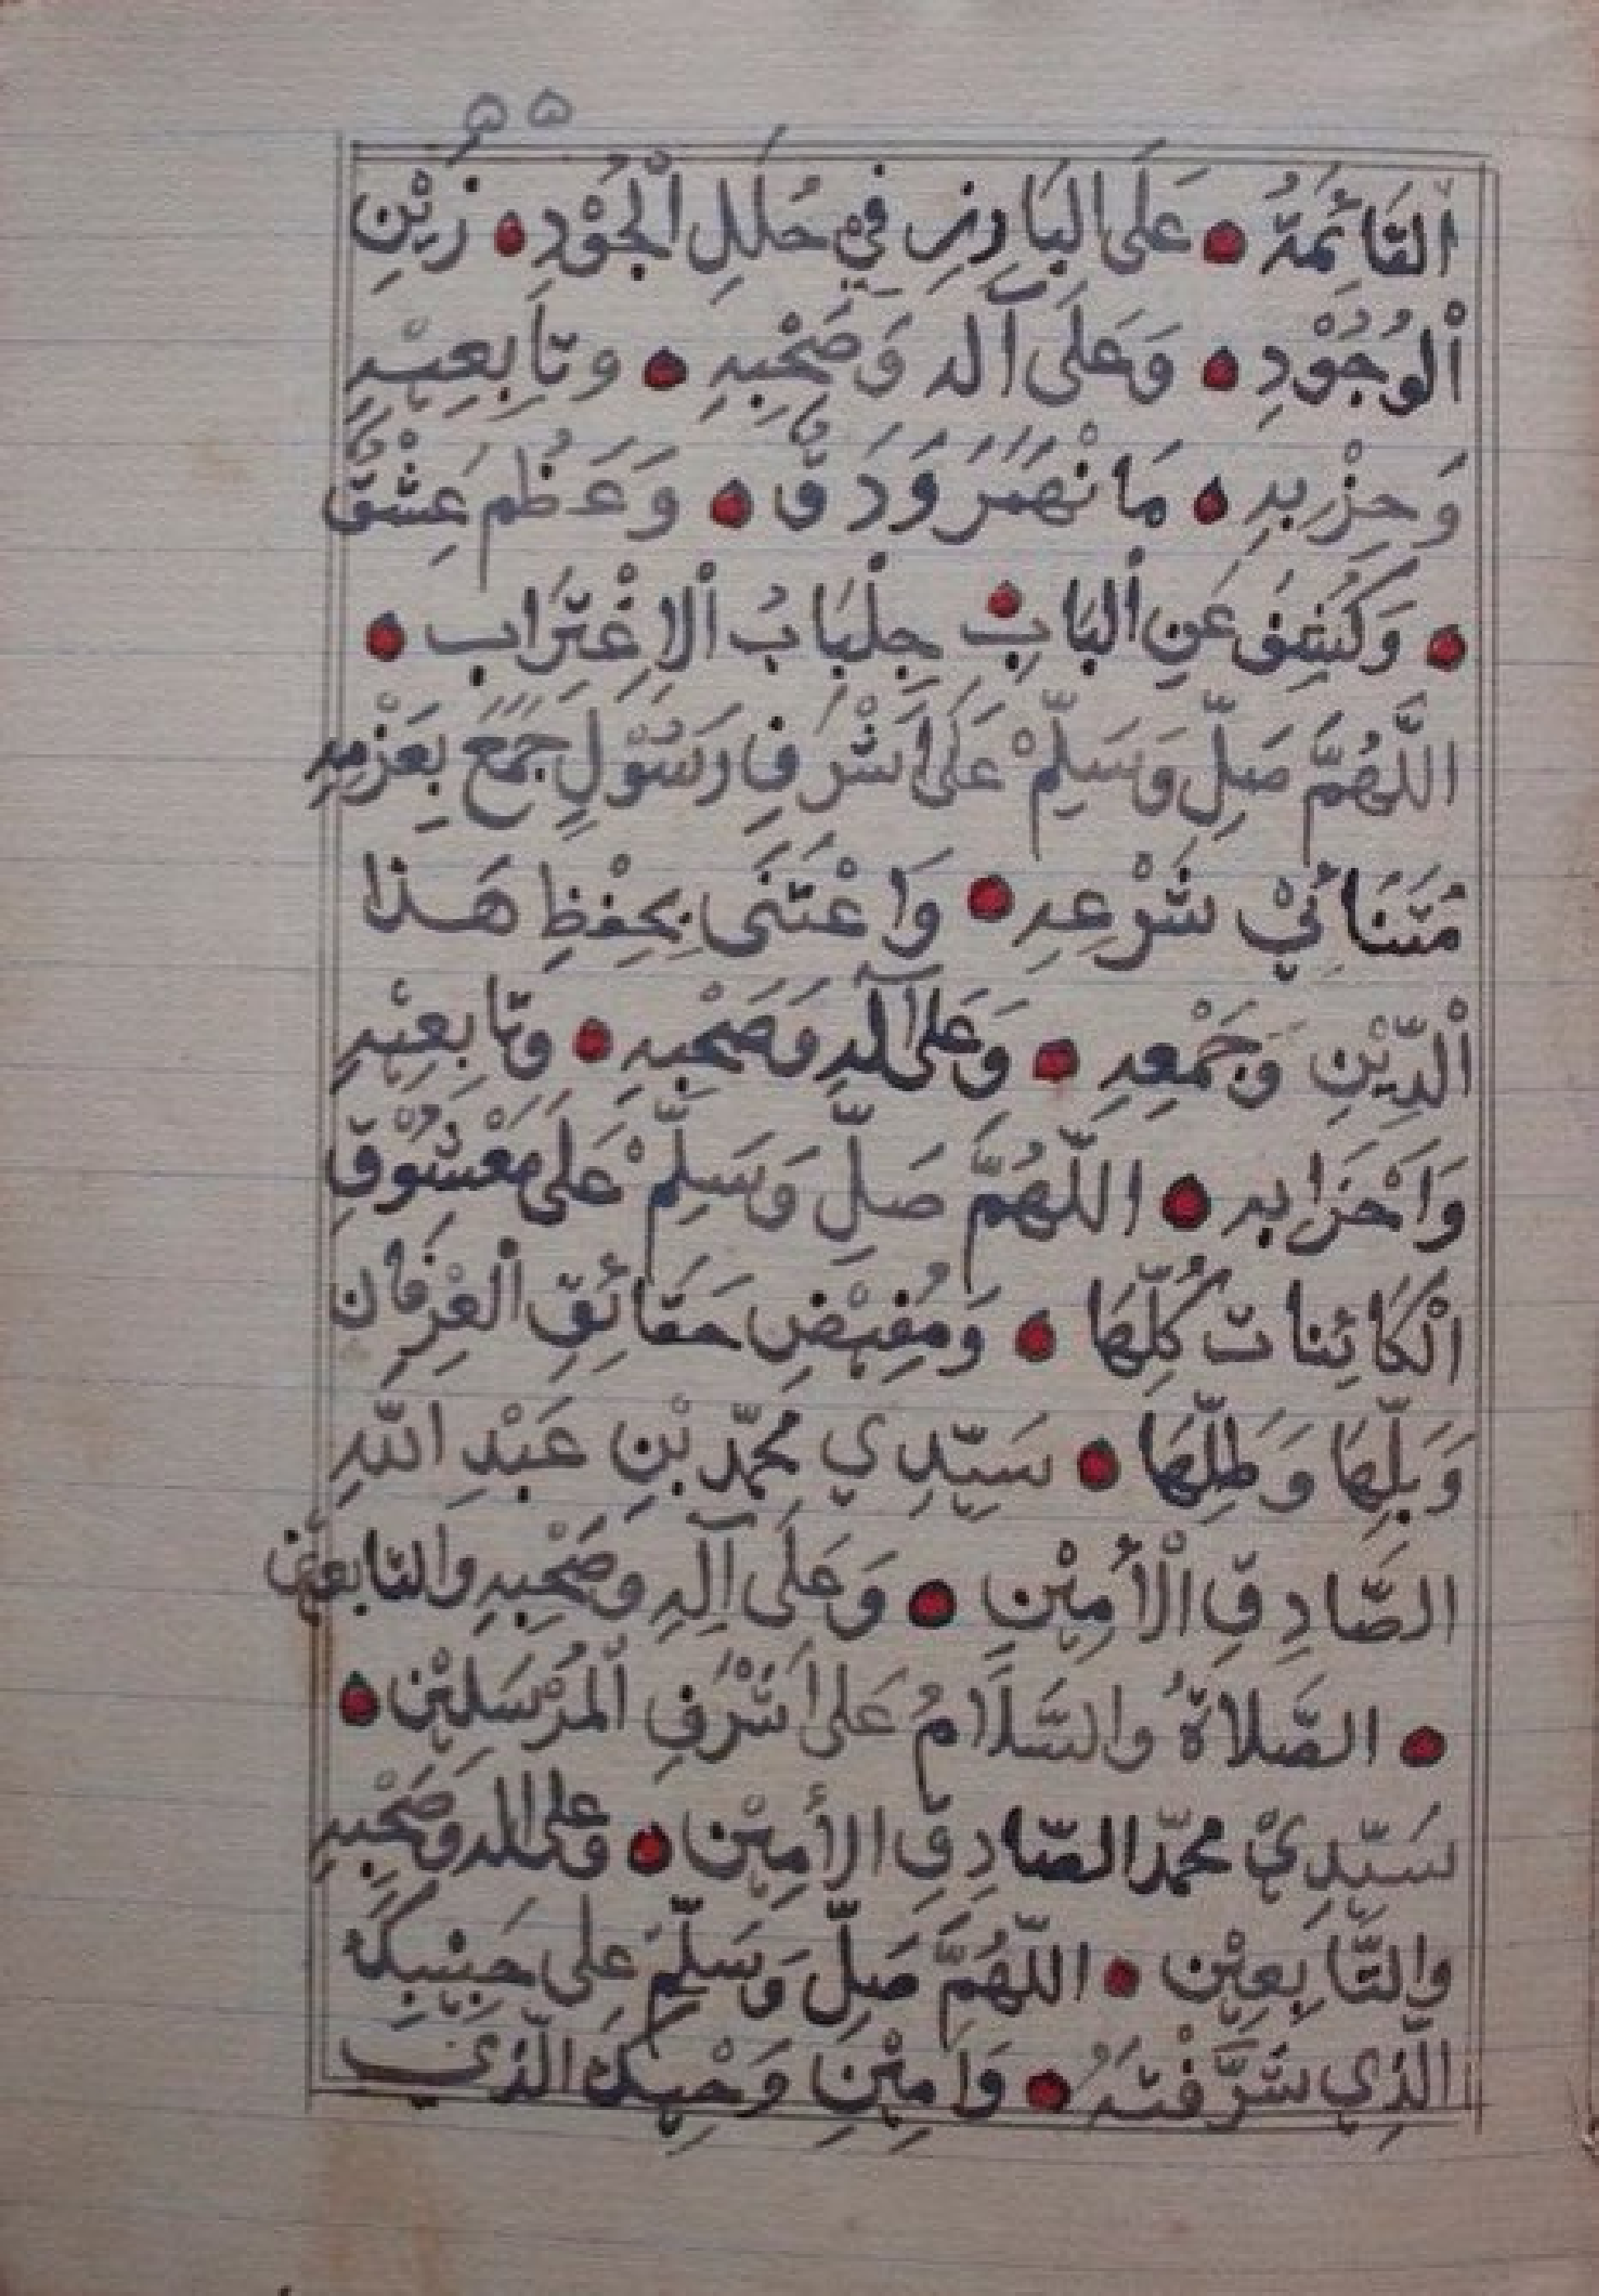 ٥٥
الْقَائِمَةُ • عَلَى الْبَارِزِ فِي حُلَلِ الْجُوْدِ • زَيْنِ
الْوُجُوْدِ • وَعَلَى آلِهِ وَصَحْبِهِ • وتَابِعِيْهِ
وَحِزْبِهِ • مَانْهَمَرَ وَدَقٌ • وَعَظُمَ عِشْقٌ
• وَكُشِفَ عَنِ الْبَابِ • جِلْبَابُ الْاِغْتِرَابِ •
اللَّهُمَّ صَلِّ وَسَلِّمْ عَلَى اَشْرَفِ رَسُوْلٍ جَمَعَ بِعَزْمِهِ
مُتَنَائِيْ شَرْعِهِ • وَاعْتَنَى بِحِفْظِ هَذا
الْدِّيْنِ وَجَمْعِهِ • وَعَلَى آلِهِ وَصَحْبِهِ • وتَابِعِيْهِ
وَاَحْزَابِهِ • اللَّهُمَّ صَلِّ وَسَلِّمْ عَلَى مَعْشُوْقِ
الْكَائِنات كُلِّهَا • وَمُفِيْضِ حَقَائِقِ الْعِرْفَان
وَبْلِهَا وَطَلِّهَا • سَيِّدِي محمّد بْنِ عَبْدِ اللّهِ
الصَّادِقِ الْأَمِيْنِ • وَعَلَى آلِهِ وَصَحْبِهِ والتابعين
• الصَّلاةُ والسَّلَامُ عَلَى اَشْرَفِ الْمُرْسَلِيْن •
سَيِّدِيْ محمّد الصَّادِقِ الأَمِيْن • وعلى اله وَصَحْبِهِ
والتَّابِعِيْن • اللَّهُمَّ صَلِّ وَسَلِّمْ عَلى حَبِيْبِكَ
الَّذِي شَرَّفْتَهُ • وَاَمِيْنِ وَحْيِكَ الَّذِي